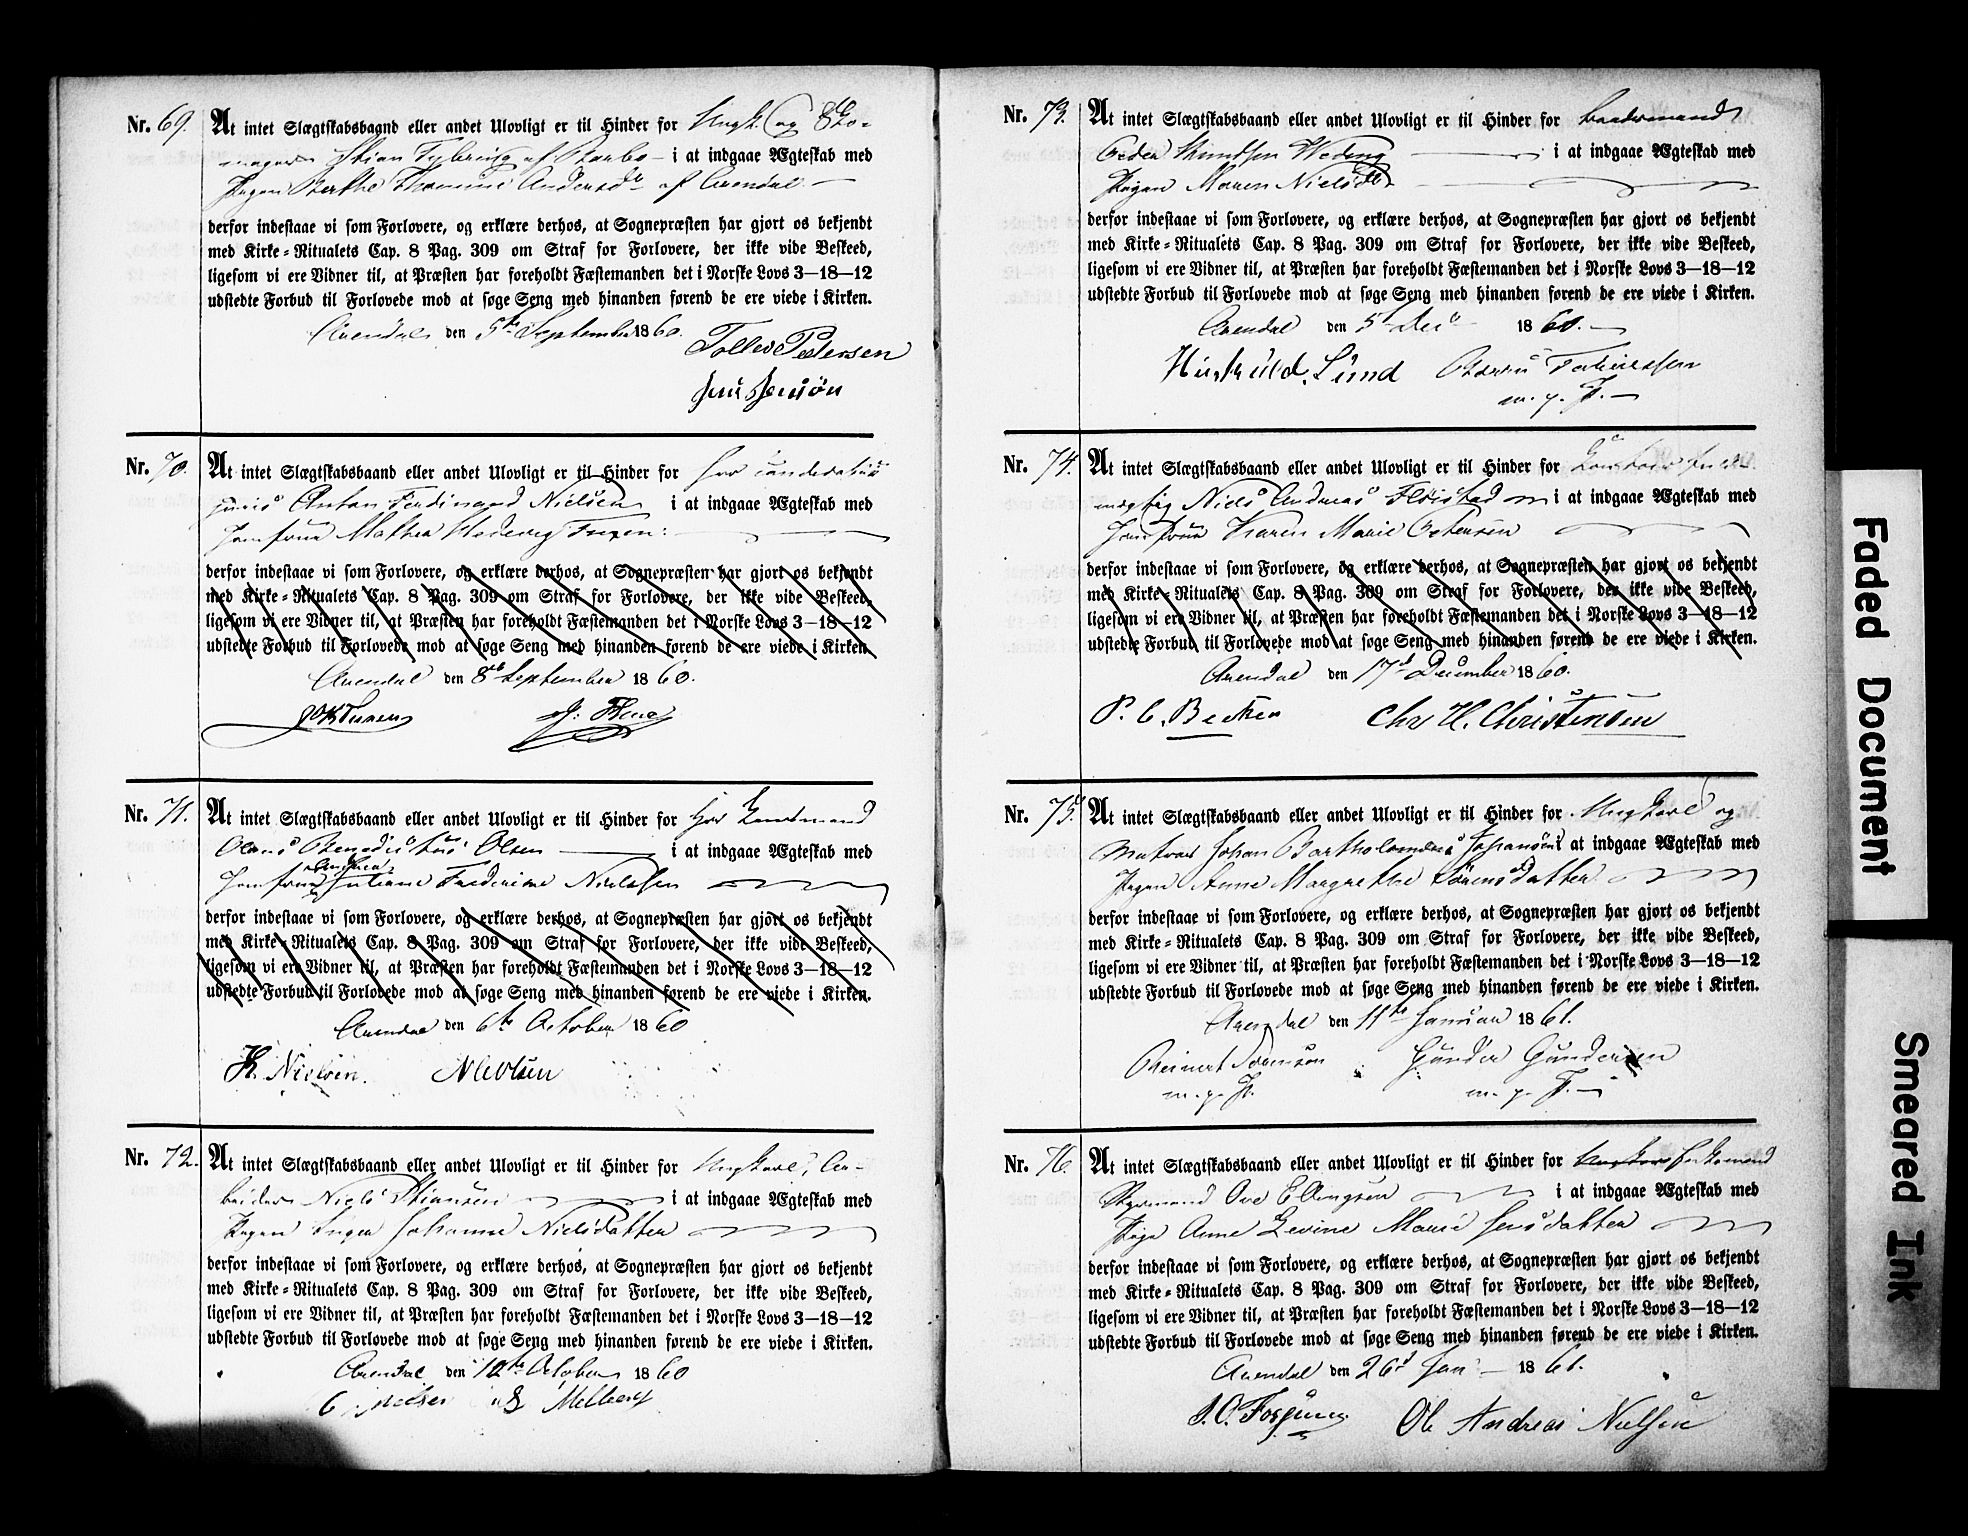 Nr. 69. At intet Slægtskabsbaand eller andet Ulovligt er til Hinder for Ungk. og Sko-
mager Stian af i at indgaae Ægteskab med
Pigen Berthe Andersd. af Arendal
derfor indestaae vi som Forlovere, og erklære derhos, at Sognepræsten har gjort os bekjendt
med Kirke-Ritualets Cap. 8 Pag. 309 om Straf for Forlovere, der ikke vide Beskeed,
ligesom vi ere Vidner til, at Præsten har foreholdt Fæstemanden det i Norske Lovs 3—18—12
udstedte Forbud til Forlovede mod at søge Seng med hinanden førend de ere viede i Kirken.
Arendal den 5te September 1860.
Tollev Pedersen
Jens Jensøn
Nr. 70. At intet Slægtskabsbaand eller andet Ulovligt er til Hinder for Hrr candidatus
juris Anton Ferdinand Nielsen i at indgaae Ægteskab med
Jomfrue Mathea Hedevig
derfor indestaae vi som Forlovere, og erklære derhos, at Sognepræsten har gjort os bekjendt
med Kirke-Ritualets Cap. 8 Pag. 309 om Straf for Forlovere, der ikke vide Beskeed,
ligesom vi ere Vidner til, at Præsten har foreholdt Fæstemanden det i Norske Lovs 3—18—12
udstedte Forbud til Forlovede mod at søge Seng med hinanden førend de ere viede i Kirken.
Arendal den 8de September 1860.
Nr. 71. At intet Slægtskabsbaand eller andet Ulovligt er til Hinder for Hrr
Olaus Benedictus Olsen i at indgaae Ægteskab med
Jomfrue Juliane Frederikke Nielsen
derfor indestaae vi som Forlovere, og erklære derhos, at Sognepræsten har gjort os bekjendt
med Kirke-Ritualets Cap. 8 Pag. 309 om Straf for Forlovere, der ikke vide Beskeed,
ligesom vi ere Vidner til, at Præsten har foreholdt Fæstemanden det i Norske Lovs 3—18—12
udstedte Forbud til Forlovede mod at søge Seng med hinanden førend de ere viede i Kirken.
Arendal den 6te October 1860
H. Nielsen.
Nr. 72. At intet Slægtskabsbaand eller andet Ulovligt er til Hinder for Ungkarl, Ar-
beider Niels Stiansen i at indgaae Ægteskab med
Pigen Inger Johanne Nielsdatter
derfor indestaae vi som Forlovere, og erklære derhos, at Sognepræsten har gjort os bekjendt
med Kirke-Ritualets Cap. 8 Pag. 309 om Straf for Forlovere, der ikke vide Beskeed,
ligesom vi ere Vidner til, at Præsten har foreholdt Fæstemanden det i Norske Lovs 3—18—12
udstedte Forbud til Forlovede mod at søge Seng med hinanden førend de ere viede i Kirken.
Arendal den 12te October 1860
Melberg
Nr. 73. At intet Slægtskabsbaand eller andet Ulovligt er til Hinder for
Peder Knudsen i at indgaae Ægteskab med
Pigen Maren Nielsd.
derfor indestaae vi som Forlovere, og erklære derhos, at Sognepræsten har gjort os bekjendt
med Kirke-Ritualets Cap. 8 Pag. 309 om Straf for Forlovere, der ikke vide Beskeed,
ligesom vi ere Vidner til, at Præsten har foreholdt Fæstemanden det i Norske Lovs 3—18—12
udstedte Forbud til Forlovede mod at søge Seng med hinanden førend de ere viede i Kirken.
Arendal den 5t Dec 1860.
Lund
m. p. P.
Nr. 74. At intet Slægtskabsbaand eller andet Ulovligt er til Hinder for
mægtig Niels Andreas Fløistad i at indgaae Ægteskab med
Jomfrue Karen Marie Petersen
derfor indestaae vi som Forlovere, og erklære derhos, at Sognepræsten har gjort os bekjendt
med Kirke-Ritualets Cap. 8 Pag. 309 om Straf for Forlovere, der ikke vide Beskeed,
ligesom vi ere Vidner til, at Præsten har foreholdt Fæstemanden det i Norske Lovs 3—18—12
udstedte Forbud til Forlovede mod at søge Seng med hinanden førend de ere viede i Kirken.
Arendal den 17d December 1860.
P. C. Chr H. Christensen
Nr. 75. At intet Slægtskabsbaand eller andet Ulovligt er til Hinder for Ungkarl og
Matros Johan Bartholomæus i at indgaae Ægteskab med
Pigen Anne Margrethe Sørensdatter
derfor indestaae vi som Forlovere, og erklære derhos, at Sognepræsten har gjort os bekjendt
med Kirke-Ritualets Cap. 8 Pag. 309 om Straf for Forlovere, der ikke vide Beskeed,
ligesom vi ere Vidner til, at Præsten har foreholdt Fæstemanden det i Norske Lovs 3—18—12
udstedte Forbud til Forlovede mod at søge Seng med hinanden førend de ere viede i Kirken.
Arendal den 11te Januar 1861.
Reinert Sørensen Gunder Gundersen
m. p. P. m. p. P.
Nr. 76. At intet Slægtskabsbaand eller andet Ulovligt er til Hinder for Enkemand
Styrmand Ove Ellingsen i at indgaae Ægteskab med
Pige Anne Levine Marie Jensdatter
derfor indestaae vi som Forlovere, og erklære derhos, at Sognepræsten har gjort os bekjendt
med Kirke-Ritualets Cap. 8 Pag. 309 om Straf for Forlovere, der ikke vide Beskeed,
ligesom vi ere Vidner til, at Præsten har foreholdt Fæstemanden det i Norske Lovs 3—18—12
udstedte Forbud til Forlovede mod at søge Seng med hinanden førend de ere viede i Kirken.
Arendal den 26d Jan 1861.
Ole Andreas Nielsen
Faded Document
Smeared Ink